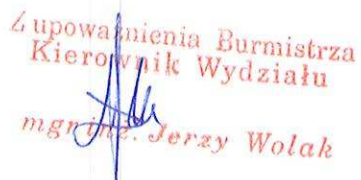 Z upoważnienia Burmistrza
Kierownik Wydziału
mgr inż. Jerzy Wolak